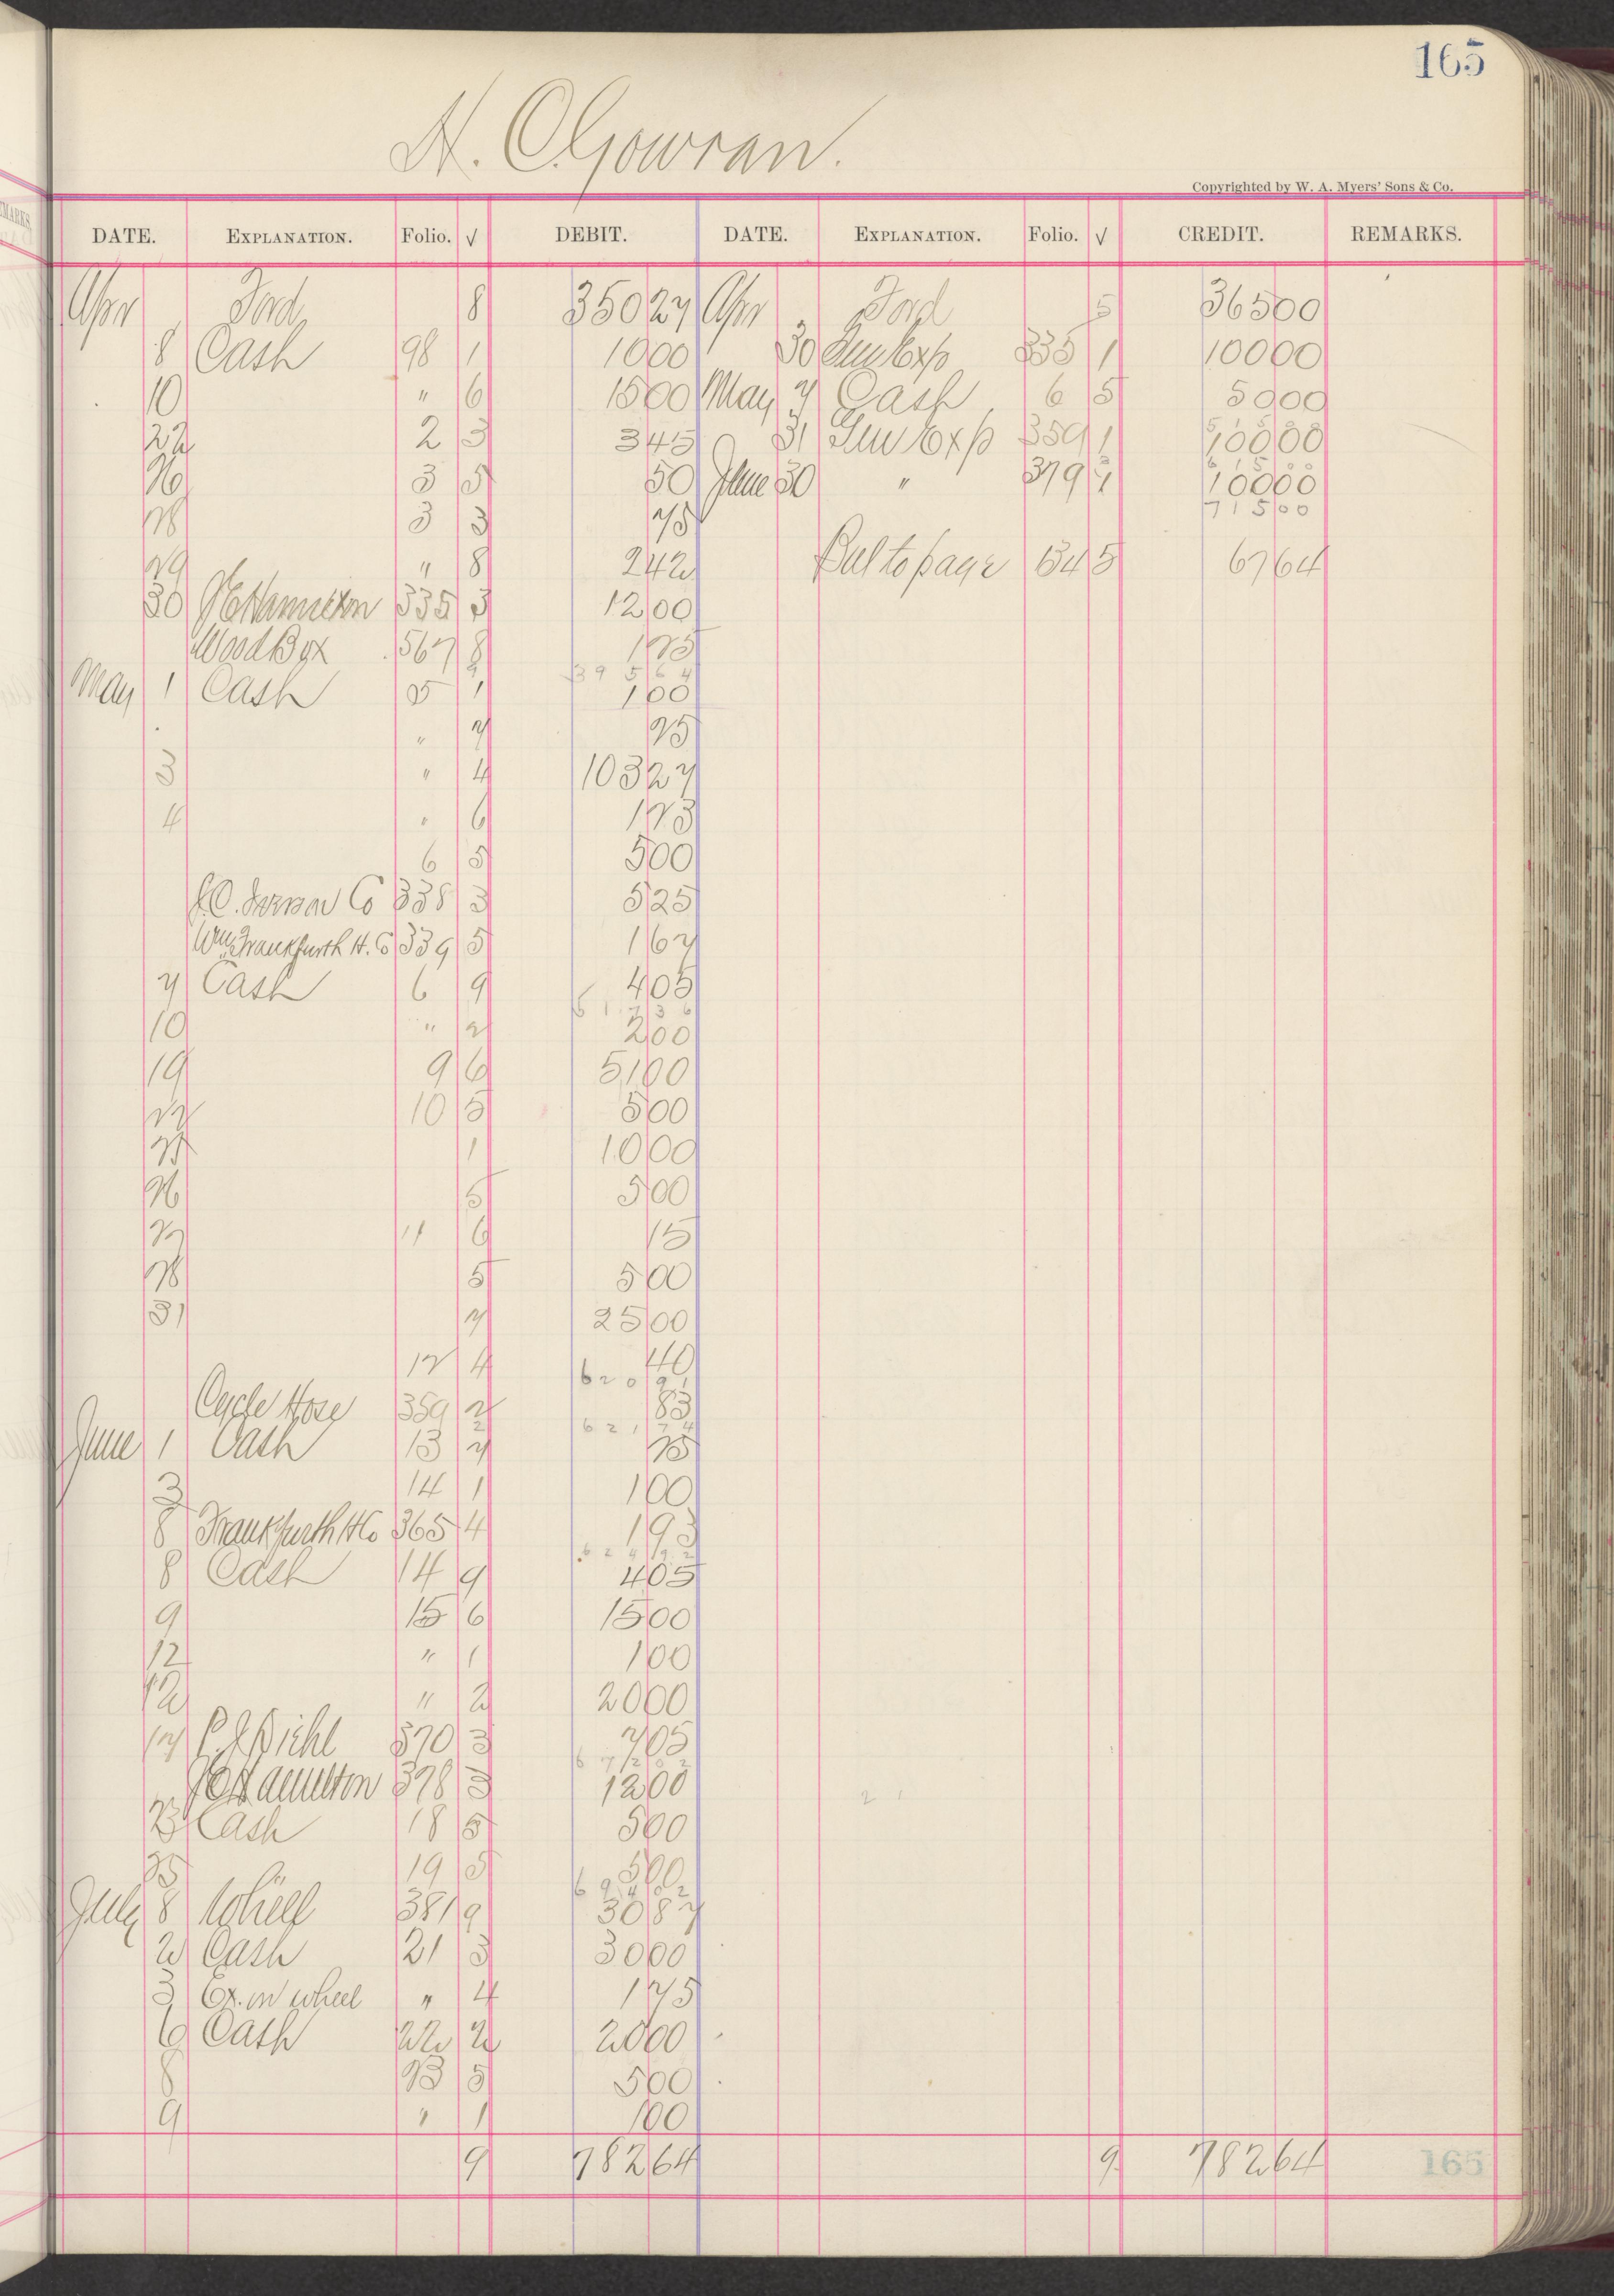 165
H. C. Gowran.
Copyrighted by W. A. Myers' Sons & Co.
DATE. EXPLANATION. Folio. √ DEBIT. DATE. EXPLANATION. Folio. √ CREDIT. REMARKS.
Apr Ford 8 35027 Apr Ford 5 36500
8 Cash 98 1 1000 30 Gen Exp 335 1 10000
10 " 6 1500 May 7 Cash 6 5 5000
22 2 3 345 31 Gen Exp 359 1 10000
26 3 5 50 June 30 " 379 10000
28 3 3 75 71500
29 " 8 242 Bal to page 545 6764
30 Hamilton 335 3 1200
Wood Box 567 8 175
3956
May 1 Cash 5 1 100
" 7 25
3 " 4 10327
4 " 6 173
6 5 500
Co 338 3 525
Wm Frankfurth H. Co 339 5 167
7 Cash 6 9 405
10 " 2 200
19 9 6 5100
22 10 5 500
1 1000
26 5 500
27 11 6 15
28 5 500
31 7 2500
12 4 40
Cycle Hose 359 2 83
June 1 Cash 13 7 25
3 14 1 100
8 Frankfurth H Co 365 4 193
8 Cash 14 9 405
9 15 6 1500
12 " 1 100
12 " 2 2000
17 Pihl 370 3 705
Hamilton 378 3 1200
23 Cash 18 5 500
25 19 5 500
July 8 Wheel 381 9 3087
2 Cash 21 3 3000
3 Ex. on wheel " 4 175
6 Cash 22 2 2000
8 23 5 500
9 " 1 100
9 78264 9 78264
165